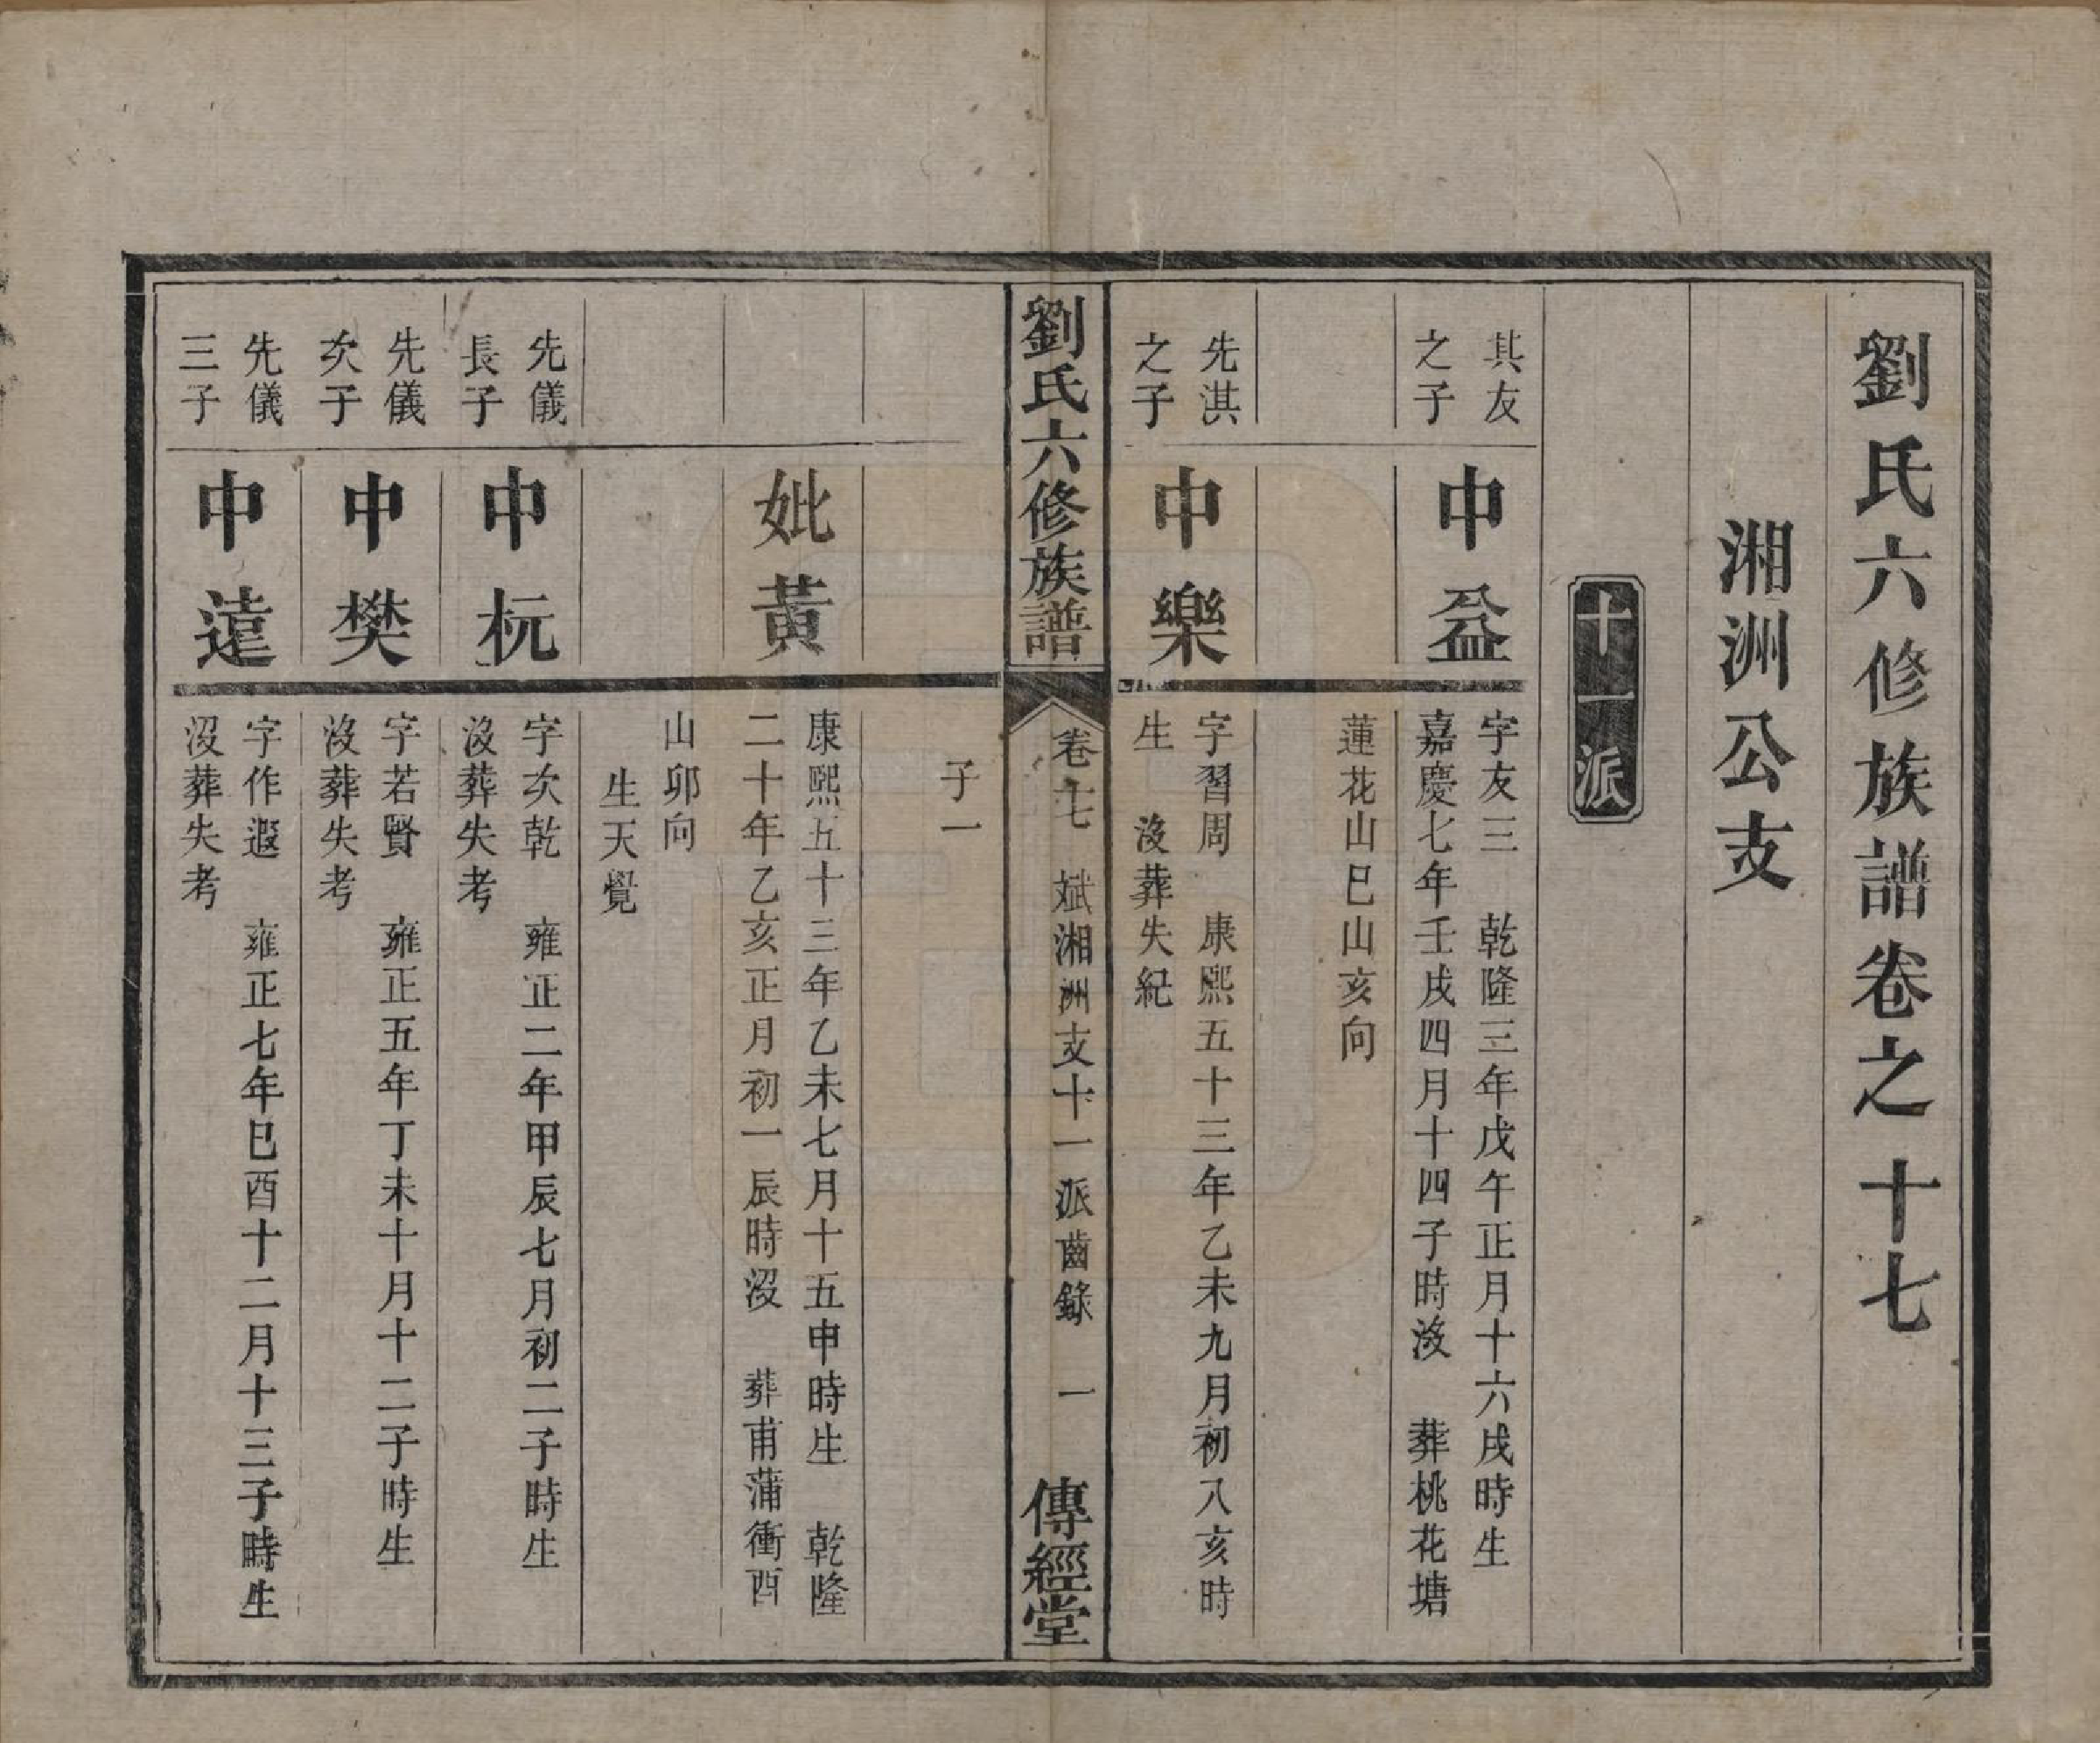 劉氏六修族譜卷之十七
湘洲公支
十一派
其友
之子
中益
字友三　乾隆三年戊午正月十六戌時生
嘉慶七年壬戌四月十四子時沒　葬桃花塘
蓮花山巳山亥向
先淇
之子
中樂
字習周　康熙五十三年乙未九月初八亥時
生　沒葬失紀
劉氏六修族譜
卷七　斌湘洲支十一派齒錄　一
傳經堂
子一
妣黃
康熙五十三年乙未七月十五申時生　乾隆
二十年乙亥正月初一辰時沒　葬甫蒲衝酉
山卯向
生天覺
先儀
長子
中杬
字次乾　雍正二年甲辰七月初二子時生
沒葬失考
先儀
次子
中樊
字若賢　雍正五年丁未十月十二子時生
沒葬失考
先儀
三子
中遠
字作遐　雍正七年巳酉十二月十三子時生
沒葬失考